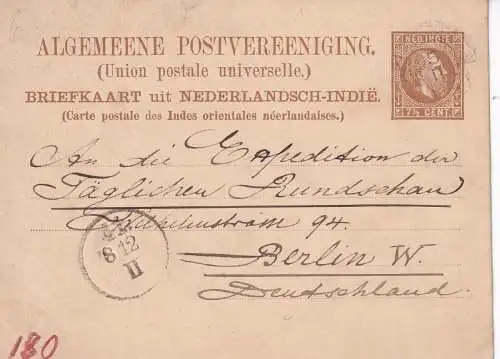 ALGEMEENE POSTVEREENIGING.
(Union postale universelle.)
BRIEFKAART uit NEDERLANDSCH-INDIË.
(Carte postale des Indes orientales néerlandaises.)
NED. INDIE
7½ CENT.
An die Expedition der
Täglichen Rundschau
94.
Berlin W.
Deutschland.
8 12
II
180